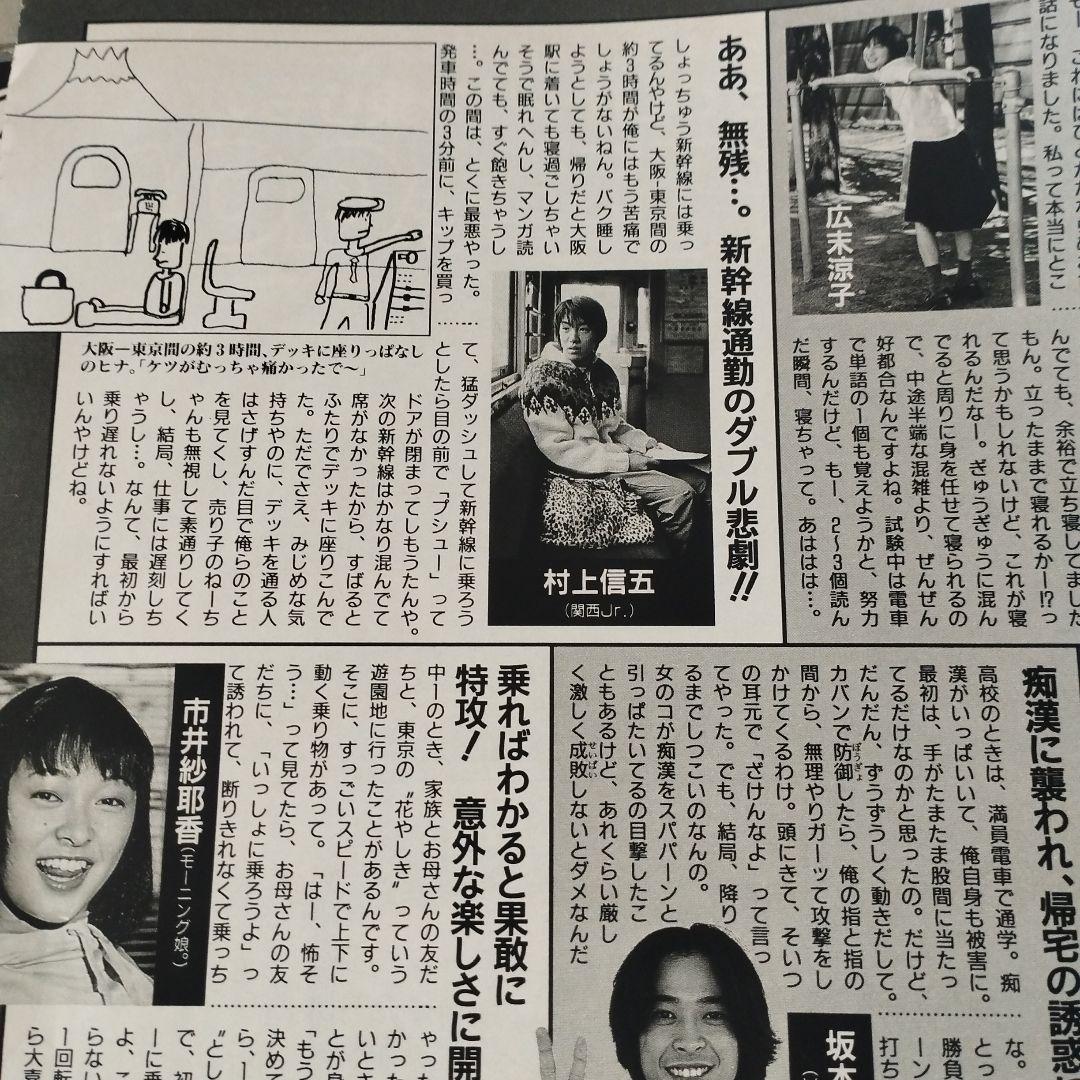 もー、これにはひ
話になりました。私って本当にとこ
広末涼子
んでても、余裕で立ち寝してました
もん。立ったままで寝れるかー!?っ
て思うかもしれないけど、これが寝
れるんだなー。ぎゅうぎゅうに混ん
でると周りに身を任せて寝られるの
で、中途半端な混雑より、ぜんぜん
好都合なんですよね。試験中は電車
で単語の一個も覚えようかと、努力
するんだけど、もー、2〜3個読ん
だ瞬間、寝ちゃって。あははは…。
ああ、無残…。新幹線通勤のダブル悲劇!!
しょっちゅう新幹線には乗っ
てるんやけど、大阪-東京間の
約3時間が俺にはもう苦痛で
しょうがないねん。バク睡し
ようとしても、帰りだと大阪
駅に着いても寝過ごしちゃい
そうで眠れへんし、マンガ読
んでても、すぐ飽きちゃうし
…。この間は、とくに最悪やった。
発車時間の3分前に、キップを買っ
て、猛ダッシュして新幹線に乗ろう
としたら目の前で「プシュー」って
ドアが閉まってしもうたんや。
次の新幹線はかなり混んでて
席がなかったから、すばると
ふたりでデッキに座りこんで
た。ただでさえ、みじめな気
持ちやのに、デッキを通る人
はさげすんだ目で俺らのこと
を見てくし、売り子のねーち
ゃんも無視して素通りしてく
し、結局、仕事には遅刻しち
ゃうし…。なんて、最初から
乗り遅れないようにすればい
いんやけどね。
村上信五
(関西Jr.)
大阪ー東京間の約3時間、デッキに座りっぱなし
のヒナ。「ケツがむっちゃ痛かったで〜」
痴漢に襲われ、帰宅の誘惑
高校のときは、満員電車で通学。痴
漢がいっぱいいて、俺自身も被害に。
最初は、手がたまたま股間に当たっ
てるだけなのかと思ったの。だけど、
だんだん、ずうずうしく動きだして。
カバンで防御したら、俺の指と指の
ぼうぎょ
間から、無理やりガーッて攻撃をし
かけてくるわけ。頭にきて、そいつ
の耳元で「ざけんなよ」って言っ
てやった。でも、結局、降り
るまでしつこいのなんの。
女のコが痴漢をスパパーンと
引っぱたいてるの目撃したこ
ともあるけど、あれくらい厳し
く激しく成敗しないとダメなんだ
せいばい
な。
とっ
勝負
ーン
打ち
坂本
乗ればわかると果敢に
特攻! 意外な楽しさに開
中一のとき、家族とお母さんの友だ
ちと、東京の〝花やしき〟っていう
遊園地に行ったことがあるんです。
そこに、すっごいスピードで上下に
動く乗り物があって。「はー、怖そ
う…」って見てたら、お母さんの友
だちに、「いっしょに乗ろうよ」っ
て誘われて、断りきれなくて乗っち
ゃった
かった
いとき
とが身
「もう
決めて
ら、ー
〝どし
で、初
ーに乗
よ、こ
らない
一回転
ら大喜
市井紗耶香(モーニング娘。)